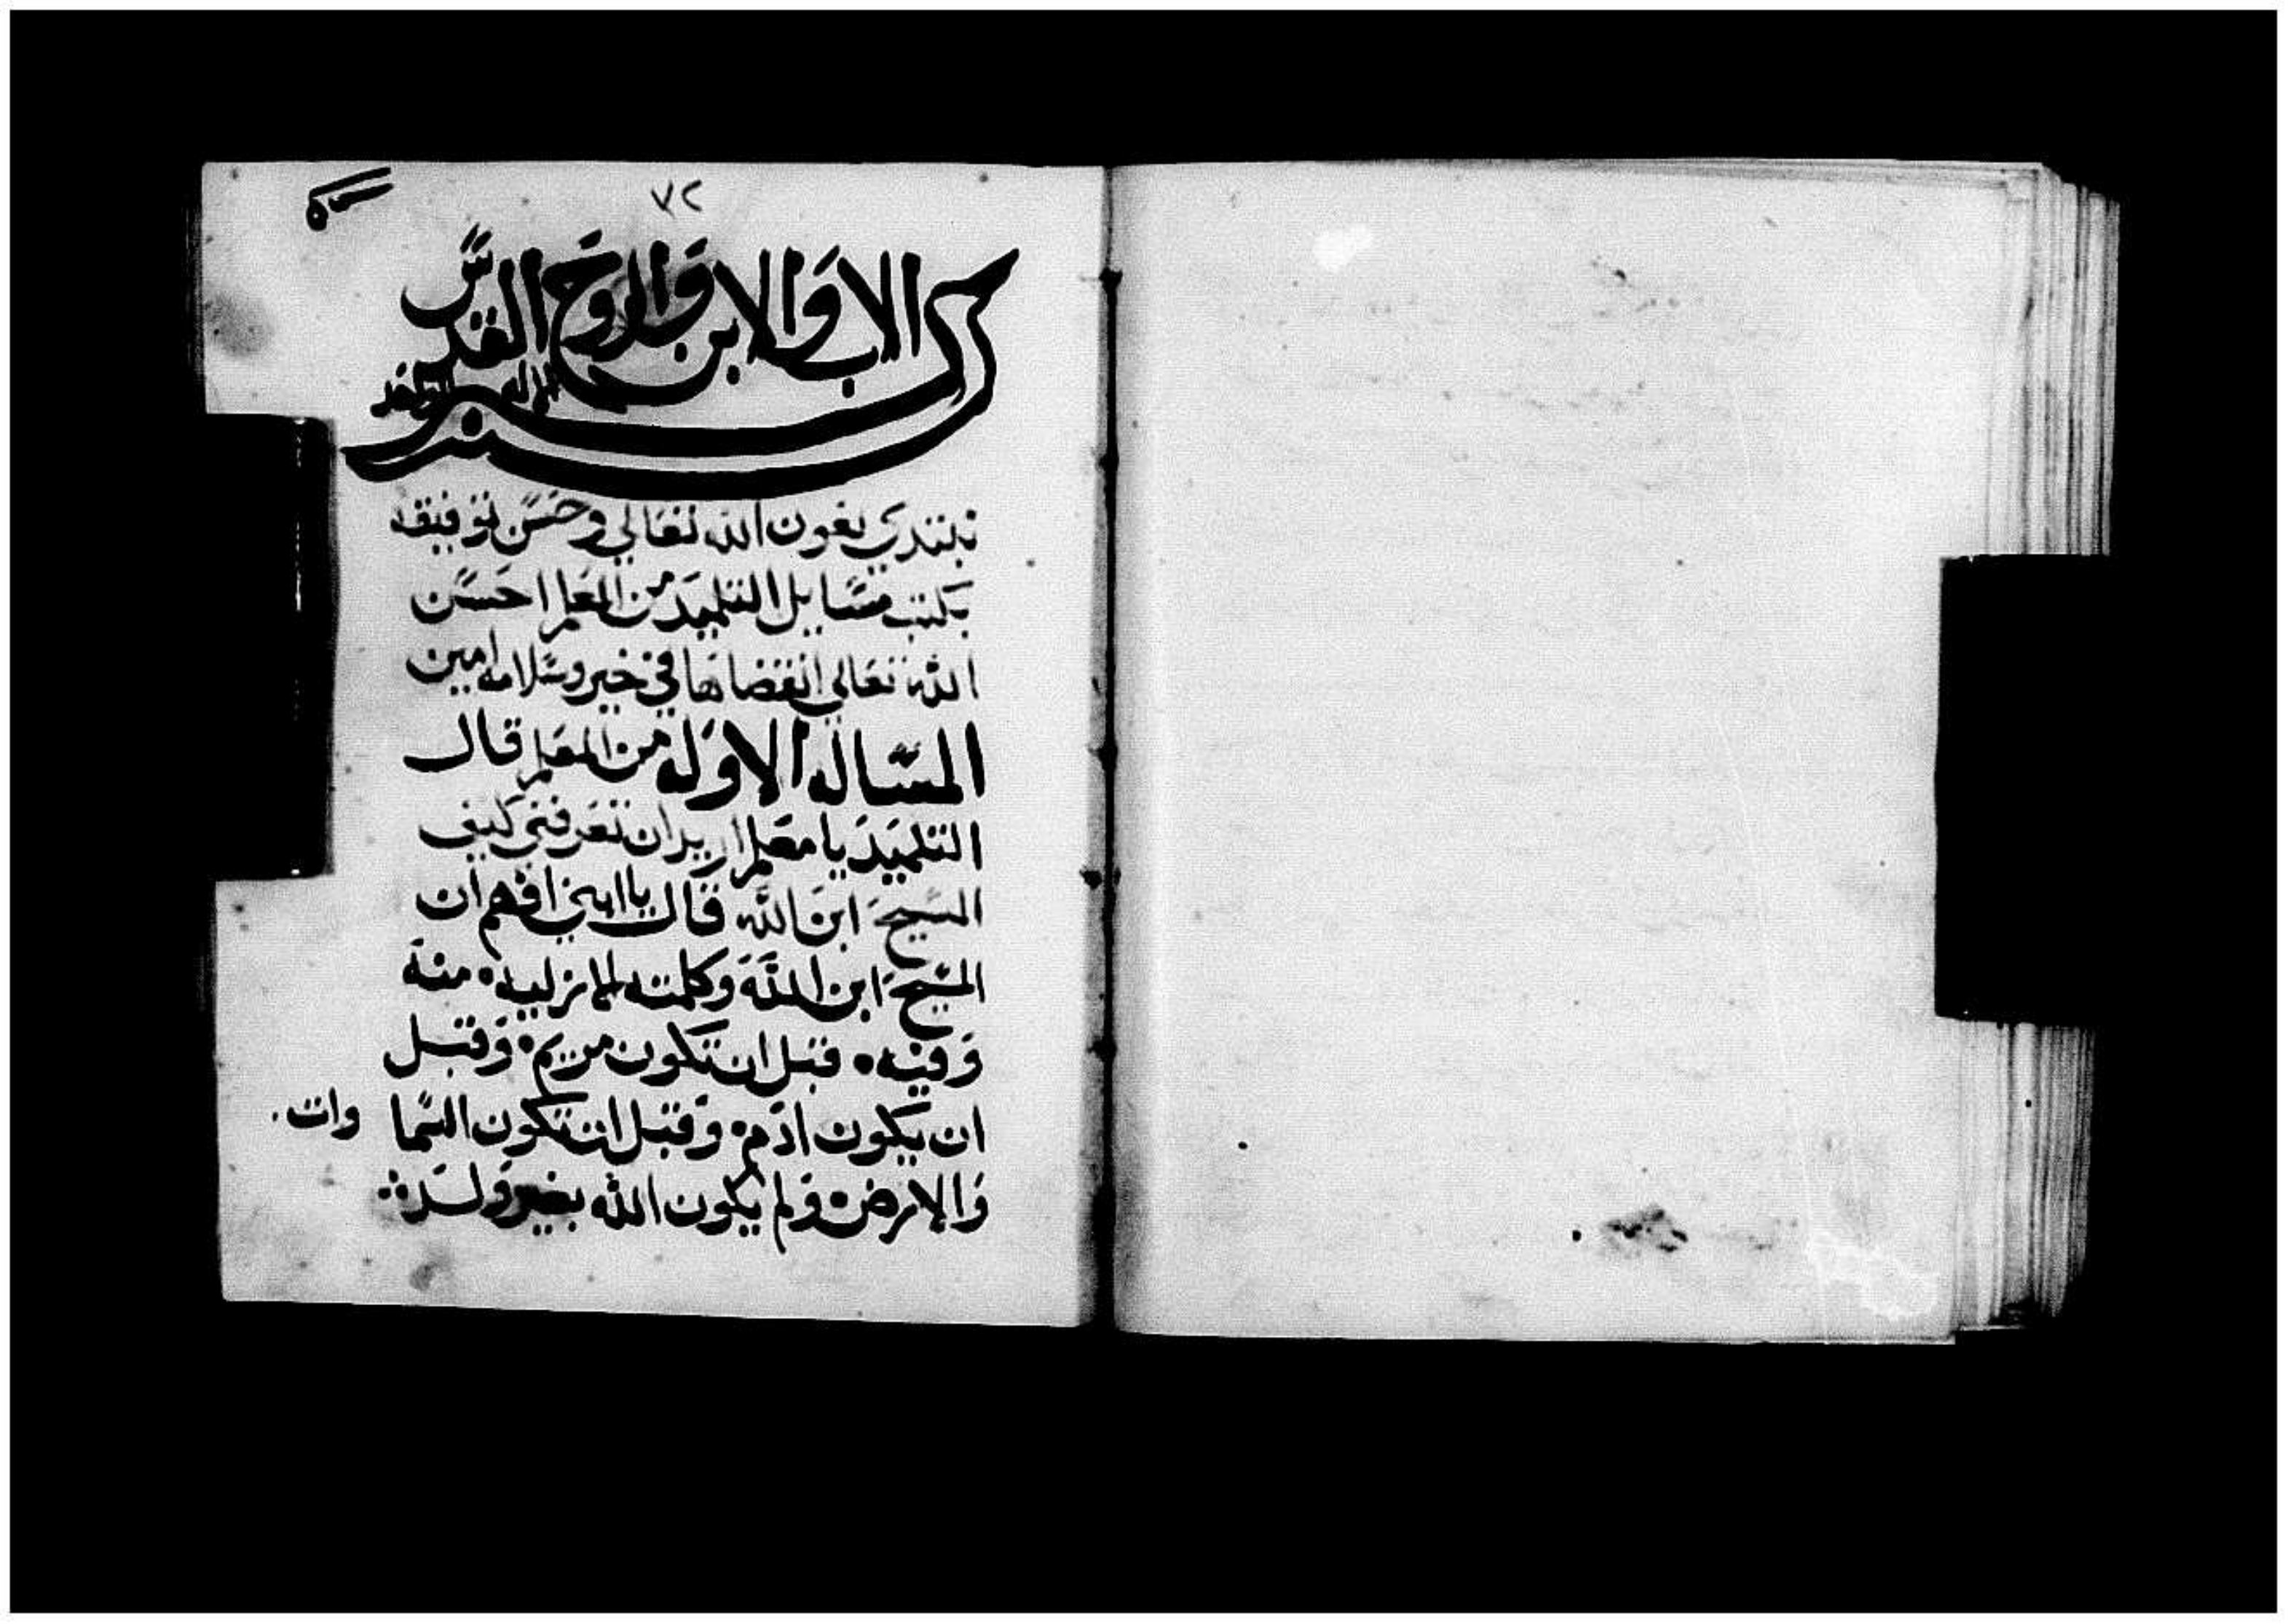 ٧٢
بسم الاب والابن والروح القدس
الاله الواحد
نبتدي بعون الله تعالي وحسن توفيقه
بكتب مسايل التلميد من المعلم احسن
الله تعالي انقضاها في خير وسلامه امين
المساله الاوله من المعلم قال
التلميد يا معلم اريد ان تعرفني كيف
المسيح ابن الله قال يا ابني افهم ان
المسيح ابن الله وكلمته الازليه منه
وفيه قبل ان تكون مريم وقبل
ان يكون ادم وقبل ان تكون السما وات
والارض ولم يكون الله بغير ولد